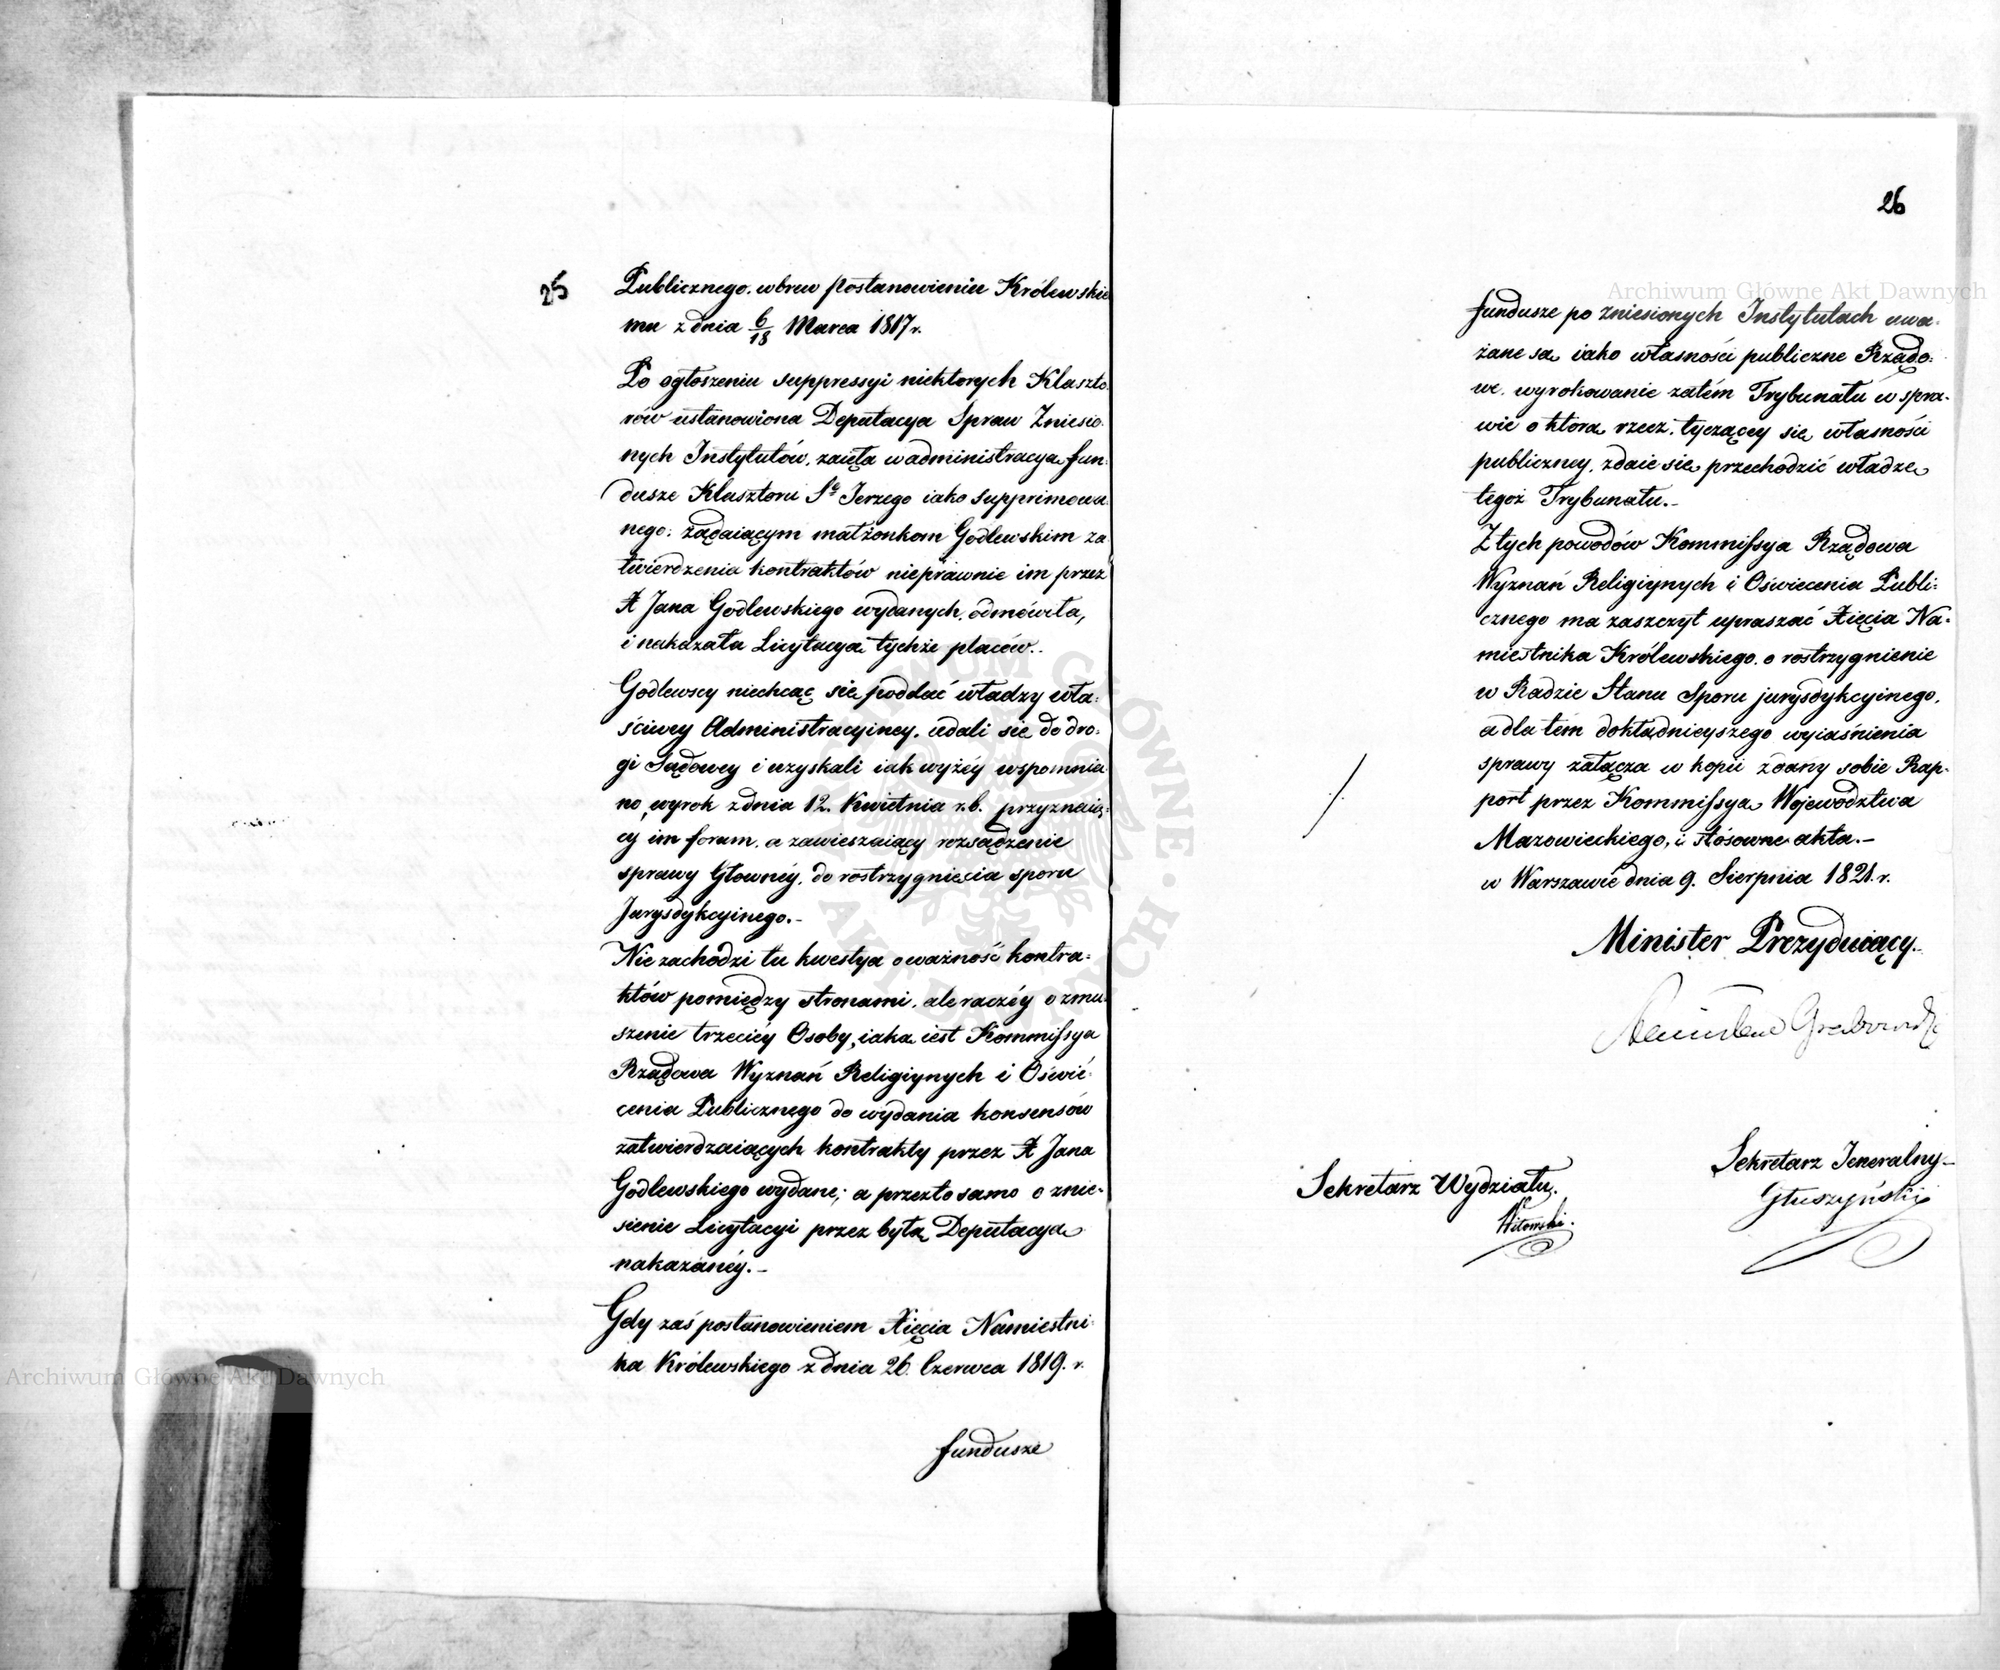 25
Publicznego. wbrew Postanowieniu Królewskie
mu z dnia 6/18 Marca 1817 r.
Po ogłoszeniu suppressyi niektorych Klaszto
rów ustanowiona Deputacya Spraw Zniesio
nych Instytutów, zaięła w administracyą fun:
dusze Klasztoru Sgo Jerzego iako supprimowa
nego: żądaiącym małżonkom Godlewskim za
twierdzenia kontraktów nieprawnie im przez
X Jana Godlewskiego wydanych, odmówiła,
i nakazała Licytacyą tychże placów.
Godlewscy niechcąc się poddać władzy wła:
ściwey Administracyiney, udali się do dro:
gi Sądowey i uzyskali iak wyżéy wspomnia
no, wyrok z dnia 12. Kwietnia r.b. przyznaią:
cy im forum, a zawieszaiący rozsądzenie
sprawy Głównéy, do rostrzygnięcia sporu
Jurysdykcyinego.-
Nie zachodzi tu kwestya o ważność kontra:
któw pomiędzy stronami, ale raczéy o zmu:
szenie trzeciéy Osoby, iaką iest Kommissya
Rządowa Wyznań Religiynych i Oświe:
cenia Publicznego do wydania konsensów
zatwierdzaiących kontrakty przez X Jana
Godlewskiego wydane; a przezto samo o znie:
sienie Licytacyi przez byłą Deputacyą
nakazanéy.-
Gdy zaś postanowieniem Xięcia Namiestni:
ka Królewskiego z dnia 26. Czerwca 1819. r.
fundusze
26
fundusze po zniesionych Instytutach uwa:
żane są iako własności publiczne Rządo:
we, wyrokowanie zatém Trybunału w spra:
wie o którą rzecz, tyczącey się własności
publiczney, zdaie się przechodzić władzę
tegoż Trybunału.-
Z tych powodów Kommissya Rządowa
Wyznań Religiynych i Oświecenia Publi:
cznego ma zaszczyt upraszać Xięcia Na:
miestnika Królewskiego, o rostrzygnienie
w Radzie Stanu Sporu jurysdykcyinego,
a dla tem dokładnieyszego wyiaśnienia
sprawy załącza w kopii zdany sobie Rap:
port przez Kommissyą Województwa
Mazowieckiego, i stósowne akta.-
w Warszawie dnia 9. Sierpnia 1821. r.
Minister Prezyduiący.
Stanisław Grabowski
Sekretarz Jeneralny
Głuszyński
Sekretarz Wydziału.
Witowski.
Archiwum Główne Akt Dawnych
Archiwum Główne Akt Dawnych